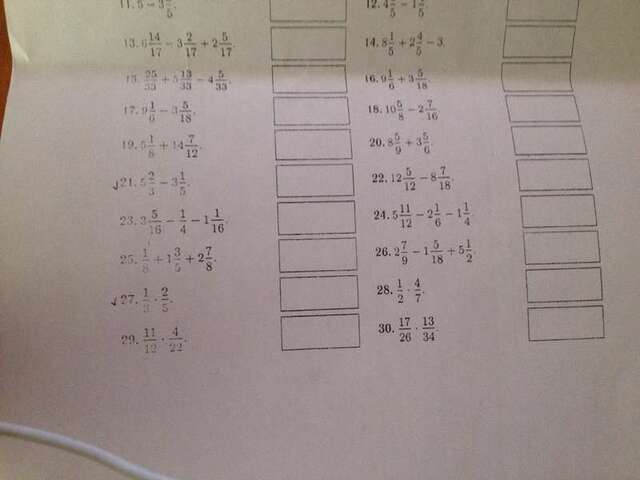 11. 5 − 3 3/5. 12. 4 2/5 − 1 2/5.
13. 6 14/17 − 3 2/17 + 2 5/17. 14. 8 1/5 + 2 4/5 − 3.
15. 25/33 + 5 13/33 − 4 5/33. 16. 9 1/6 + 3 5/18.
17. 9 1/6 − 3 5/18. 18. 10 5/8 − 2 7/16
19. 5 1/8 + 14 7/12. 20. 8 5/9 + 3 5/6.
21. 5 2/3 − 3 1/5. 22. 12 5/12 − 8 7/18.
23. 3 5/16 − 1/4 − 1 1/16. 24. 5 11/12 − 2 1/6 − 1 1/4.
25. 1/8 + 1 3/5 + 2 7/8. 26. 2 7/9 − 1 5/18 + 5 1/2.
27. 1/3 · 2/5. 28. 1/2 · 4/7.
29. 11/12 · 4/22. 30. 17/26 · 13/34.